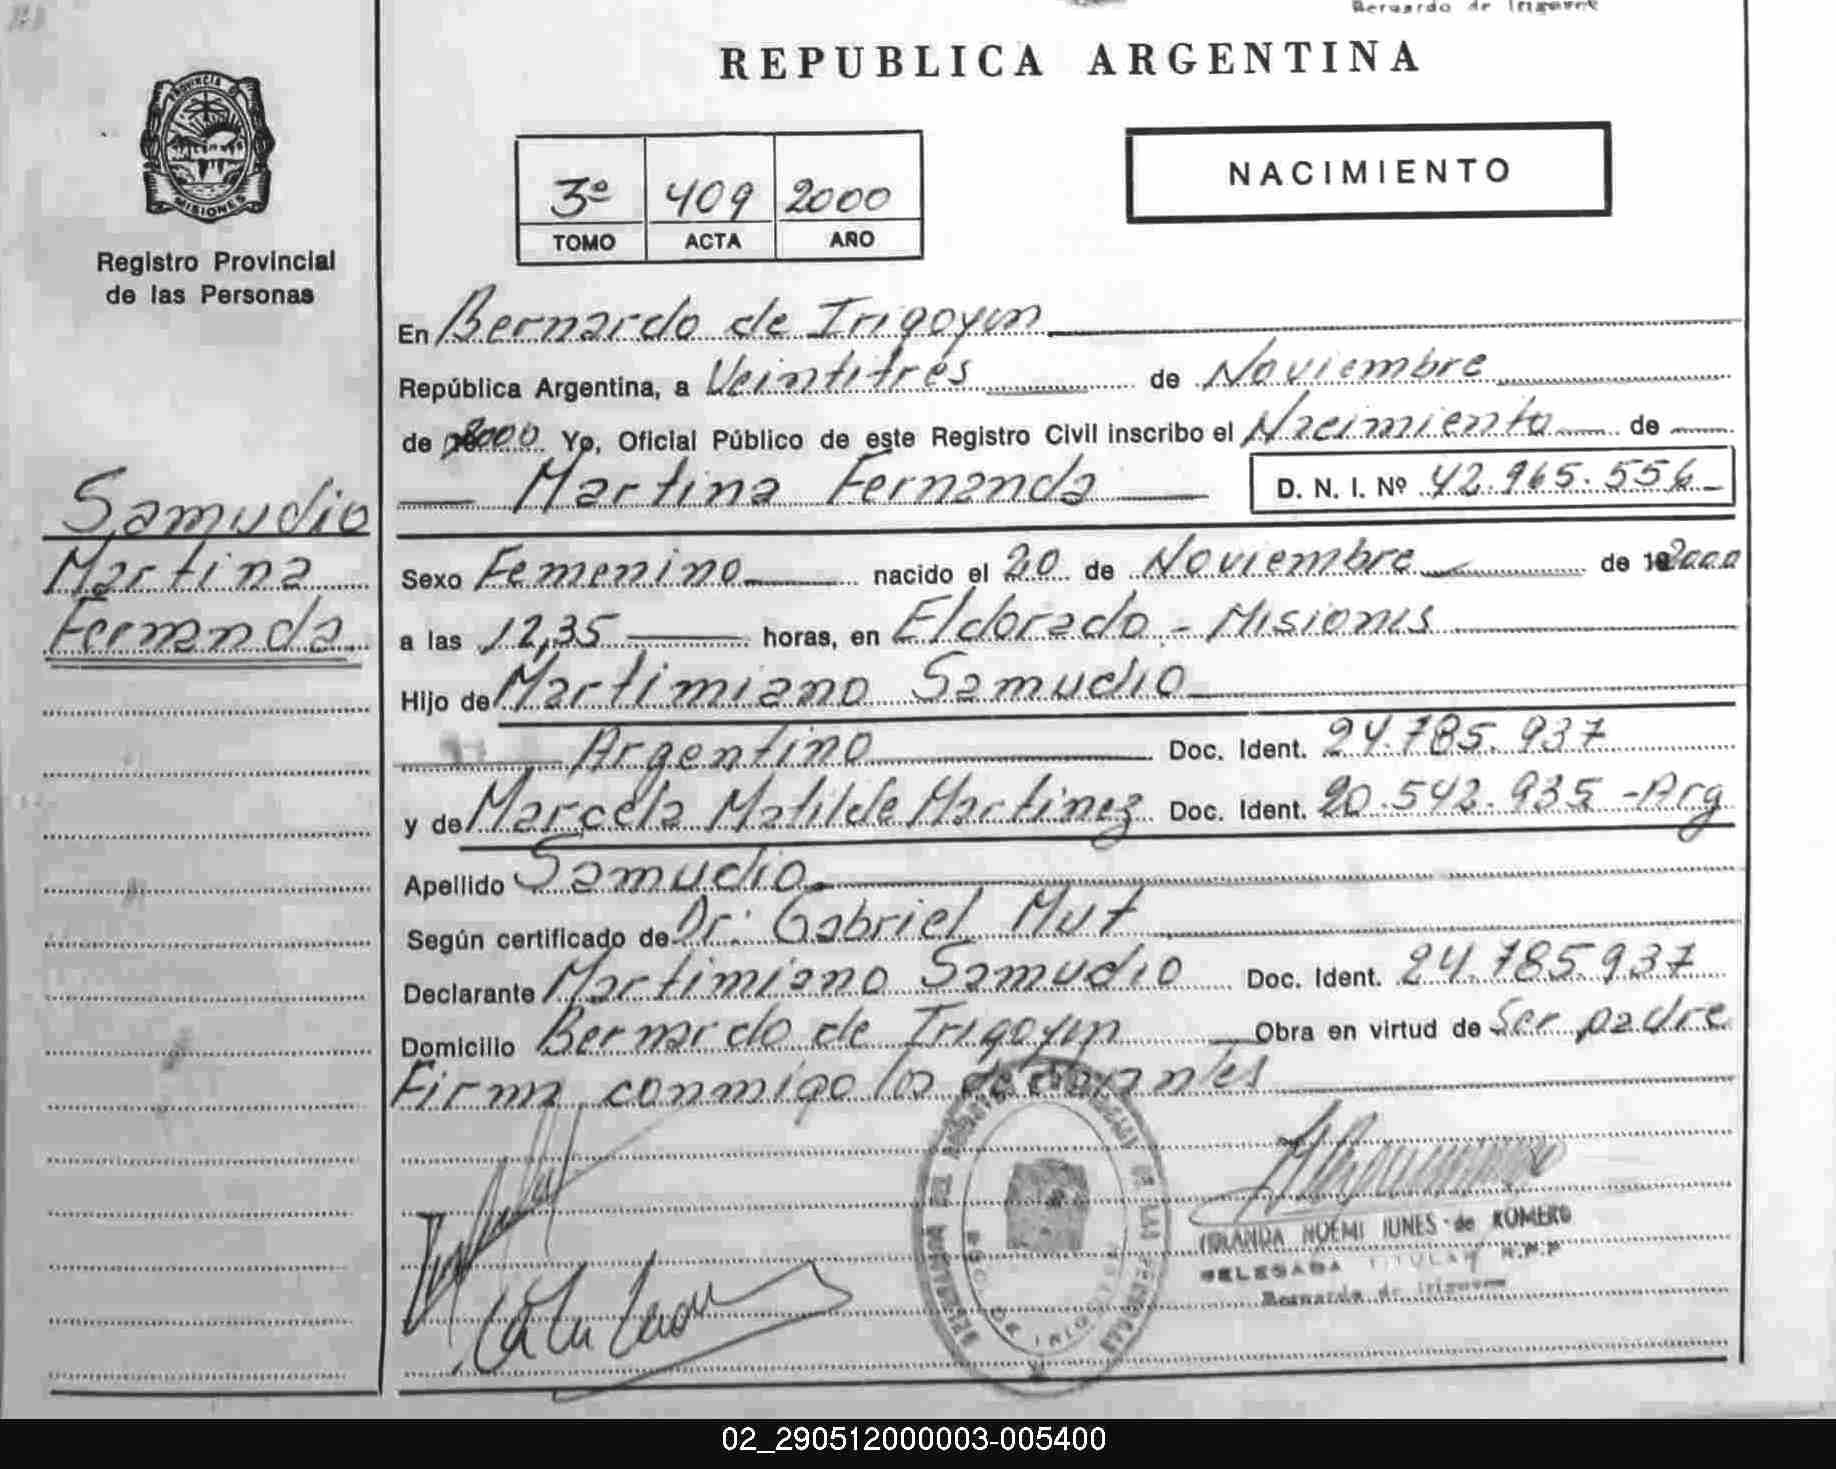 Bernardo de Irigoyen
REPUBLICA ARGENTINA
PROVINCIA DE
MISIONES
Registro Provincial
de las Personas
3º 409 2000
TOMO ACTA AÑO
NACIMIENTO
En Bernardo de Irigoyen
República Argentina, a Veintitrés de Noviembre
de 2000 Yo, Oficial Público de este Registro Civil inscribo el Nacimiento de
Martina Fernanda D. N. I. Nº 42.965.556
Samudio
Martina
Fernanda
Sexo Femenino nacido el 20 de Noviembre de 2000
a las 12,35 horas, en Eldorado - Misiones
Hijo de Martimiano Samudio
Argentino Doc. Ident. 24.785.937
y de Marcela Matilde Martinez Doc. Ident. 20.542.935 - Arg
Apellido Samudio
Según certificado de Dr: Gabriel Mut
Declarante Martimiano Samudio Doc. Ident. 24.785.937
Domicilio Bernardo de Irigoyen Obra en virtud de Ser padre
Firma conmigo los declarantes
NOEMI JUNES de ROMERO
DELEGADA TITULAR R.P.P
Bernardo de Irigoyen
02_290512000003-005400